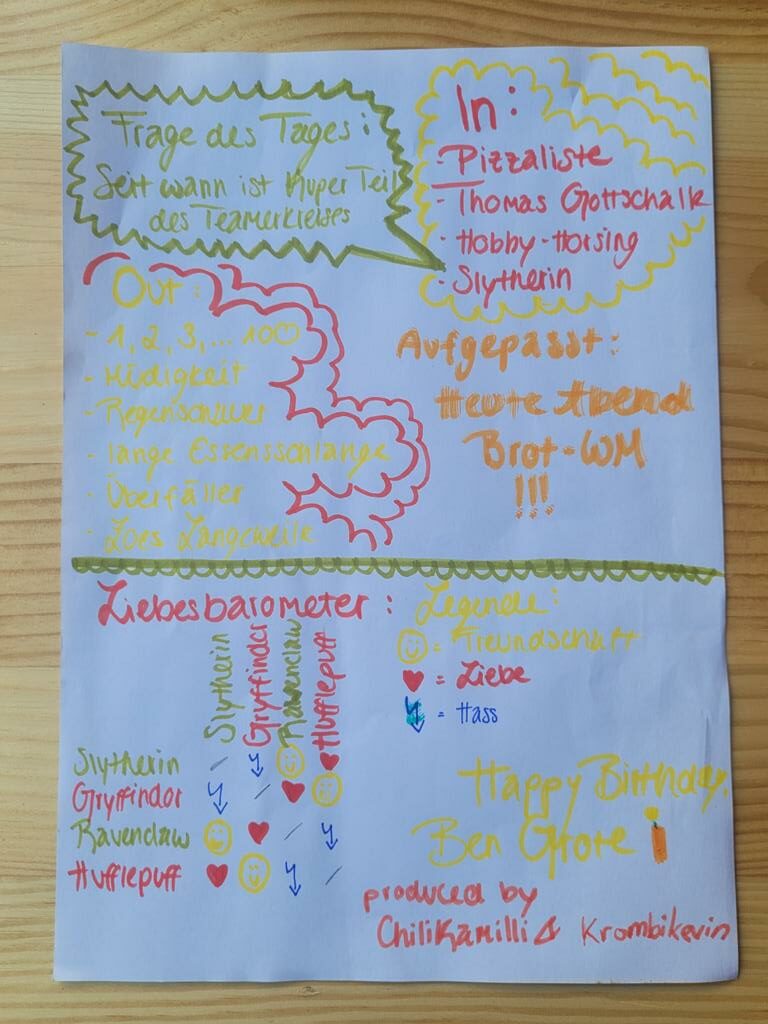 Frage des Tages:
Seit wann ist Kuper Teil
des Teamerkreises
In:
- Pizzaliste
- Thomas Gottschalk
- Hobby-Horsing
- Slytherin
Out:
- 1, 2, 3, ... 100
- Müdigkeit
- Regenschauer
- lange Essensschlange
- Überfäller
- Zoes Langeweile
Aufgepasst:
Heute Abend
Brot-WM
!!!
Liebesbarometer:
Slytherin Gryffindor Ravenclaw Hufflepuff
Slytherin /
Gryffindor /
Ravenclaw /
Hufflepuff /
Legende:
= Freundschaft
= Liebe
= Hass
Happy Birthday,
Ben Grote
produced by
ChiliKamilli & Krombikevin